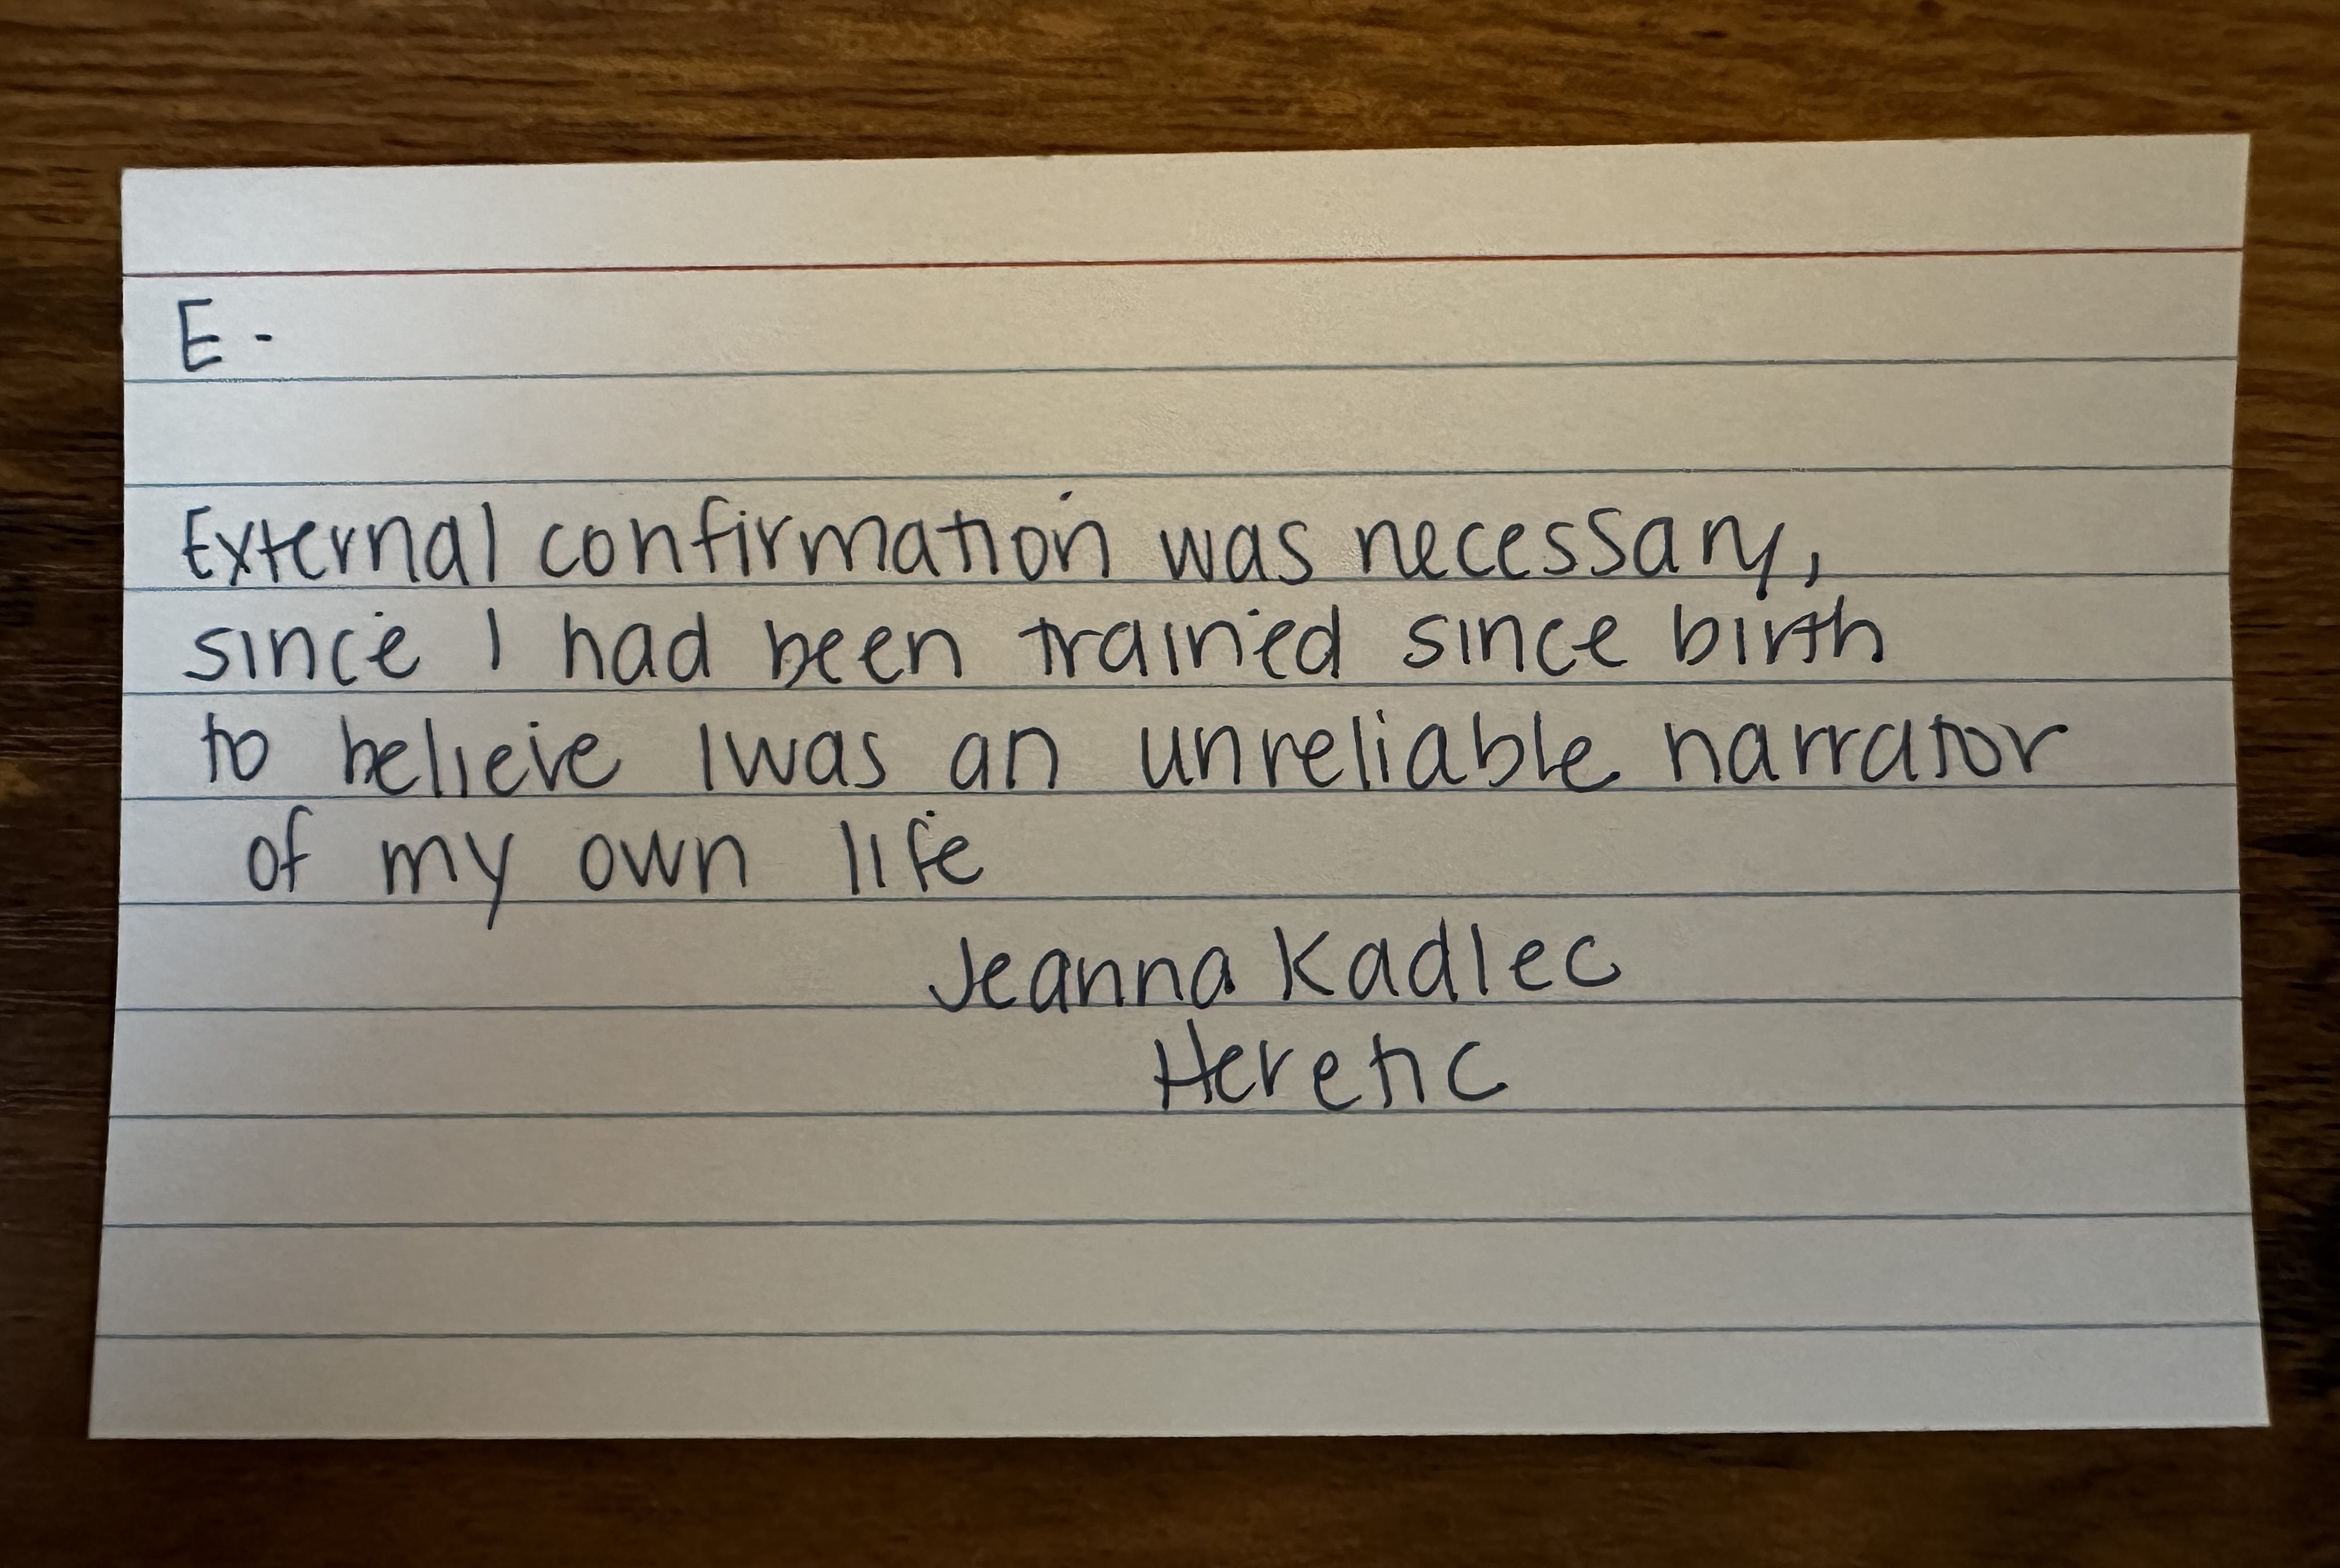 E-
External confirmation was necessary,
since I had been trained since birth
to believe I was an unreliable narrator
of my own life
Jeanna Kadlec
Heretic